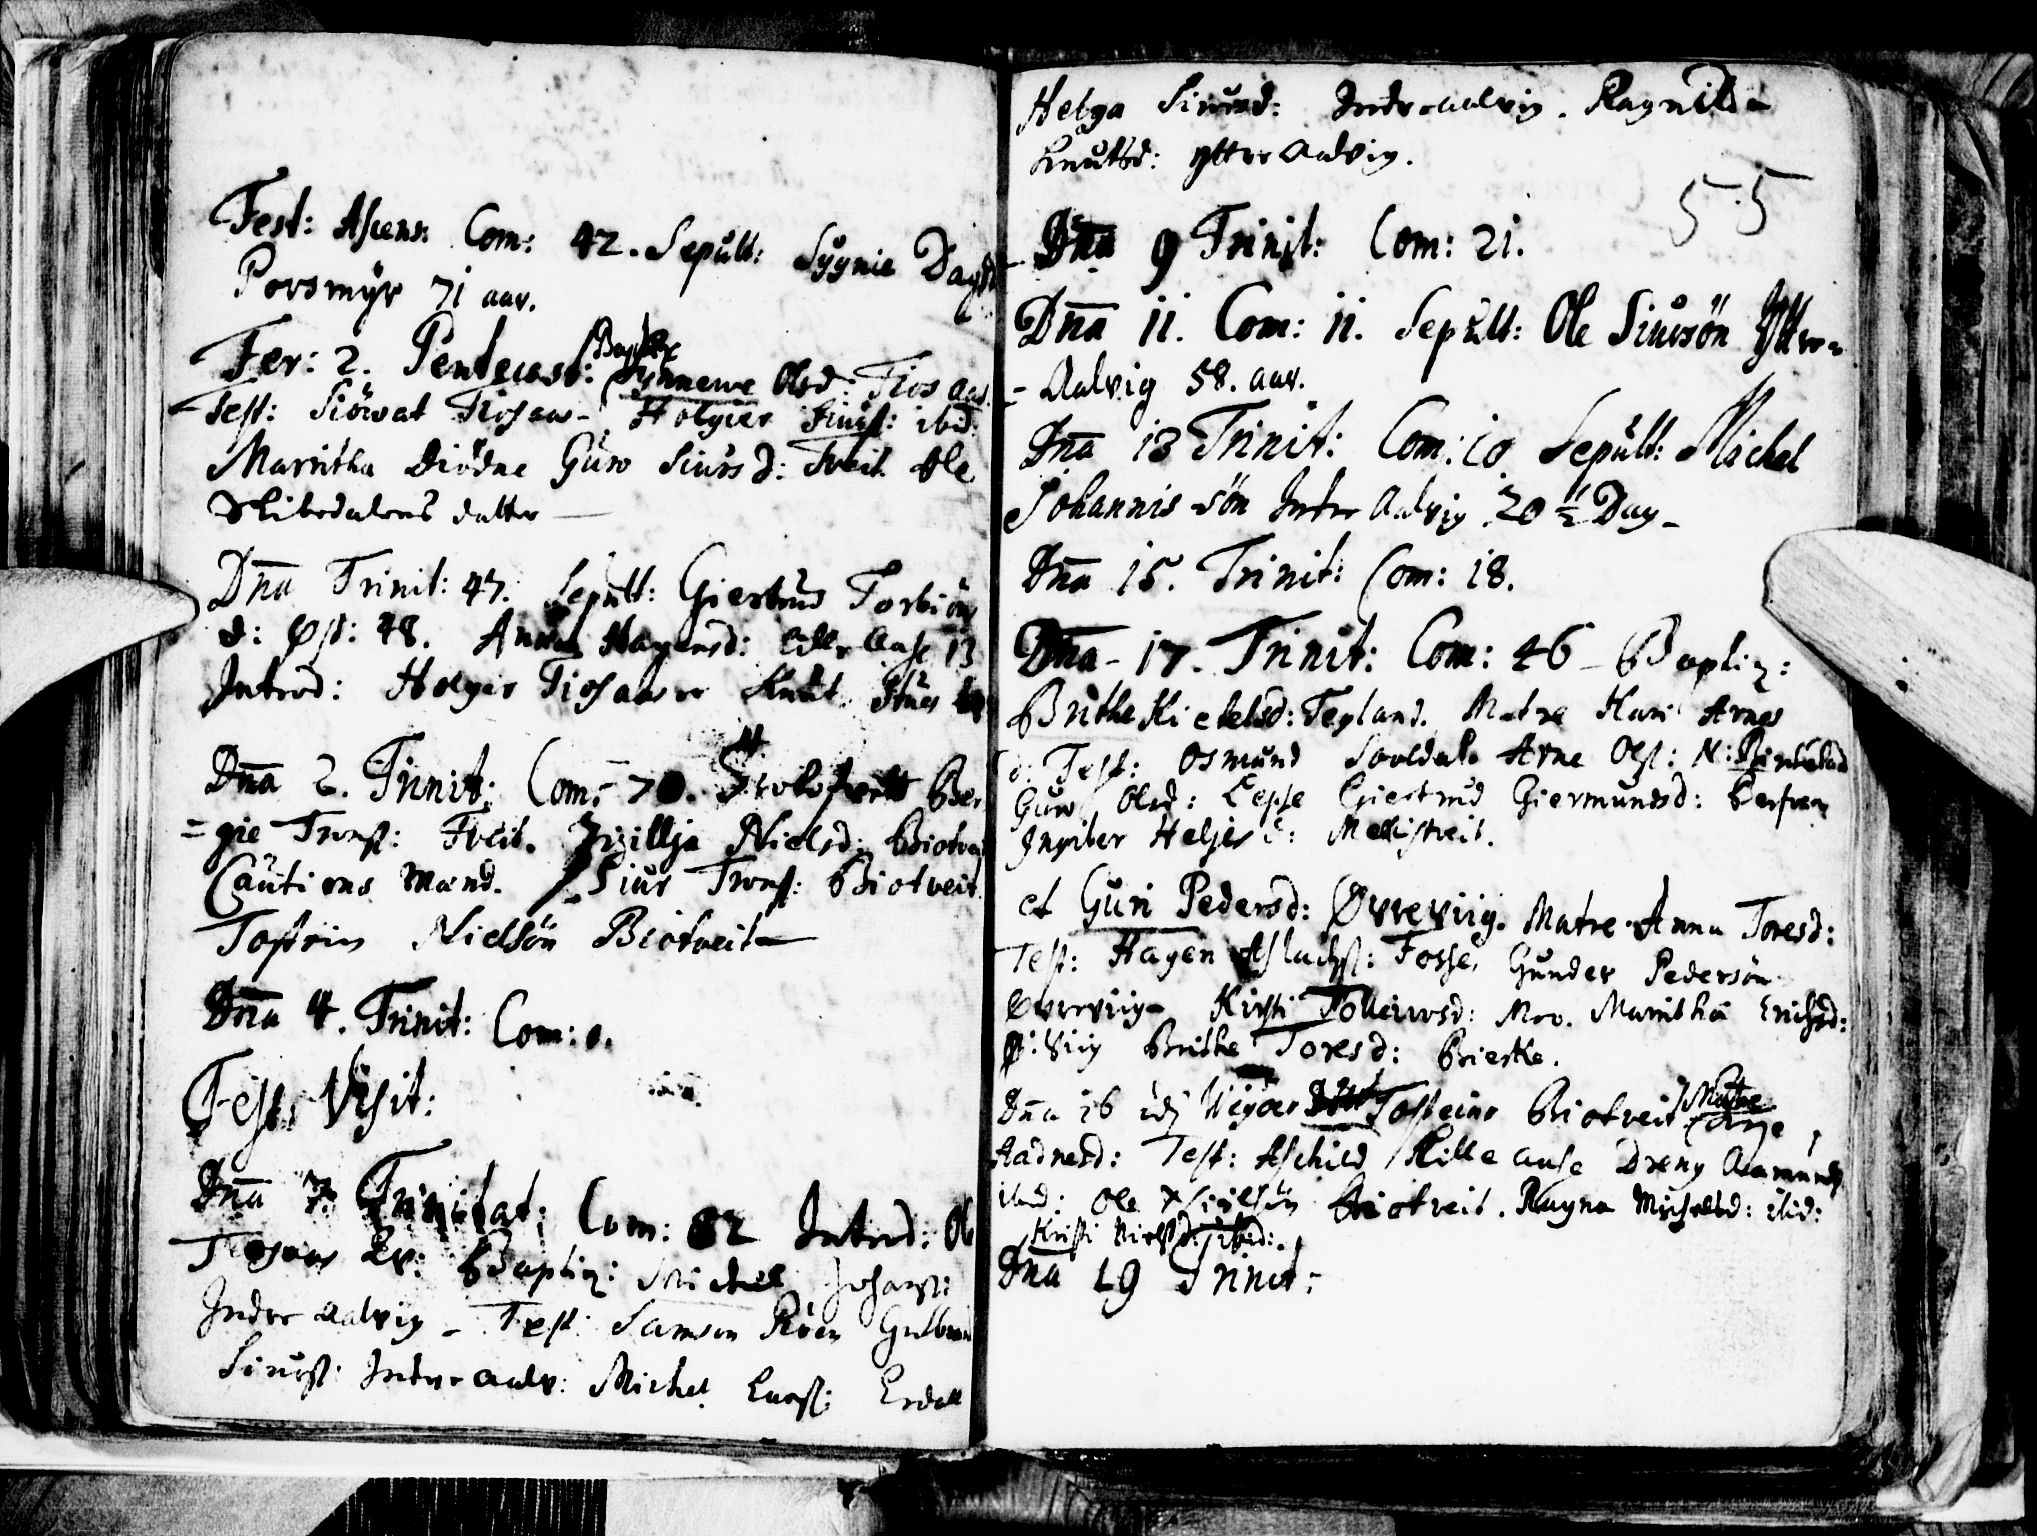 Fest: Ascens: Com: 42. Sepult: Sygnie Dags
Porsmyr 71 aar.
Fer: 2. Pentecost: Synneve Olsd: Tiosaas
Test: Siovat Tiosaas Holgier Siurs: ibid:
Maritha Diödne Guro Siursd: Tveit Ole
Slibedalens datter
Dn̄a Trinit: 47. Sepult: Giertrud Torbiörns
d: Øst: 48. Anna Hagensd: Ause 13
Introd: Holgir Tiosaas Knut
Dn̄a 2. Trinit: Com: 70. Trolofvett Ber
=gie Trons: Tveit. Zizillja Nielsd: Biotveit
Cautions Mænd. Siur Trons: Biotveit
Tosten Nielsön Biotveit
Dn̄a 4. Trinit: Com: 0.
Festo Visit:
Dn̄a 7. Trinitat: Com: 82 Introd: Ole
Tiosaas Baptiz: Michel Johans:
Indre Aalvig - Test: Samson Röen Gulbrand
Siurs: Indre aalv: Michel Lars: Erdal
Helga Siursd: Indre aalvig. Ragnilda
Knutsd: ytter Aalvig.
55
Dn̄a 9 Trinit: Com: 21.
Dn̄a 11. Com: 11. Sepult: Ole Siursön Yttre=
=Aalvig 58. aar.
Dn̄a 13 Trinit: Com: 10 Sepult: Michel
Johannis sön Indre Aalvig 20 ½ Dag
Dn̄a 15. Trinit: Com: 18.
Dn̄a 17. Trinit: Com: 46 - Baptiz:
Brithe Kietelsd: Tegland. Matre Kari Arnes
d: Test: Osmund Arne Ols: N:
Guro Olsd: Lepse Giertrud Giermundsd:
Ingiber Heljes d:
et Guri Pedersd: Øvreviig. Matre Anna Toresd:
Test: Hagen Aslachs: Fosse, Gunder Pedersön
Øvreviig Kirsti Tolleivsd: Maritha Erichsd:
Ø: Viig Brithe Toresd: Bierke.
Dn̄a 16 Wigar Tosteins Biotveit Matre
Aadnesd: Test: Aschild Kille ause Dreng Aamunds
ibid: Ole Nielsön Biotveit. Ragna Michelsd: ibid:
Kirsti Nielsd: ibid:
Dn̄a 19 Trinit: